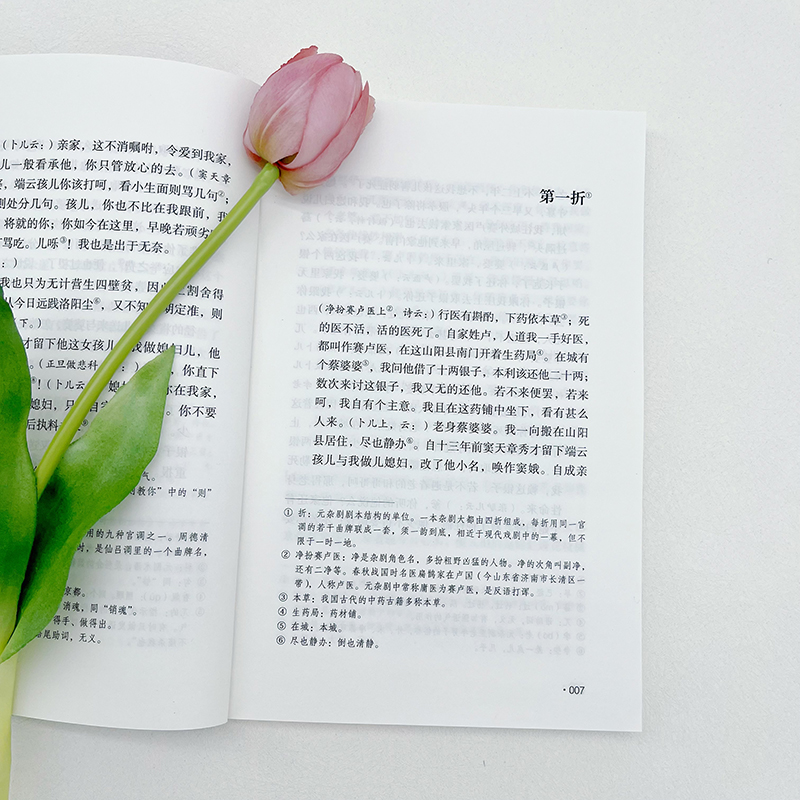 （卜儿云：）亲家，这不消嘱咐，令爱到我家，
儿一般看承他，你只管放心的去。（窦天章
端云孩儿你该打呵，看小生面则骂几句②；
则处分几句。孩儿，你也不比在我跟前，我
将就的你；你如今在这里，早晚若顽劣
骂吃。儿呀③！我也是出于无奈。
：）
我也只为无计营生四壁贫，因此 割舍得
从今日远践洛阳尘⑥，又不知 期定准，则
下。）
才留下他这女孩儿 我做媳妇儿，他
。（正旦做悲科 ：） ，你直下
！（卜儿云： 媳 你在我家，
媳妇，只 自家 。你不要
后执料
气。
的教你”中的“则”
用的九种宫调之一。周德清
时，是仙吕调里的一个曲牌名，
京都。
消魂，同“销魂”。
得手、做得出。
尾助词，无义。
第一折①
（净扮赛卢医上②，诗云：）行医有斟酌，下药依本草③；死
的医不活，活的医死了。自家姓卢，人道我一手好医，
都叫作赛卢医，在这山阳县南门开着生药局④。在城有
个蔡婆婆⑤，我问他借了十两银子，本利该还他二十两；
数次来讨这银子，我又无的还他。若不来便罢，若来
呵，我自有个主意。我且在这药铺中坐下，看有甚么
人来。（卜儿上，云：）老身蔡婆婆。我一向搬在山阳
县居住，尽也静办⑥。自十三年前窦天章秀才留下端云
孩儿与我做儿媳妇，改了他小名，唤作窦娥。自成亲
① 折：元杂剧剧本结构的单位。一本杂剧大都由四折组成，每折用同一宫
调的若干曲牌联成一套，须一韵到底，相近于现代戏剧中的一幕，但不
限于一时一地。
② 净扮赛卢医：净是杂剧角色名，多扮粗野凶猛的人物。净的次角叫副净，
还有二净等。春秋战国时名医扁鹊家在卢国（今山东省济南市长清区一
带），人称卢医。元杂剧中常称庸医为赛卢医，是反语打诨。
③ 本草：我国古代的中药古籍多称本草。
④ 生药局：药材铺。
⑤ 在城：本城。
⑥ 尽也静办：倒也清静。
·007